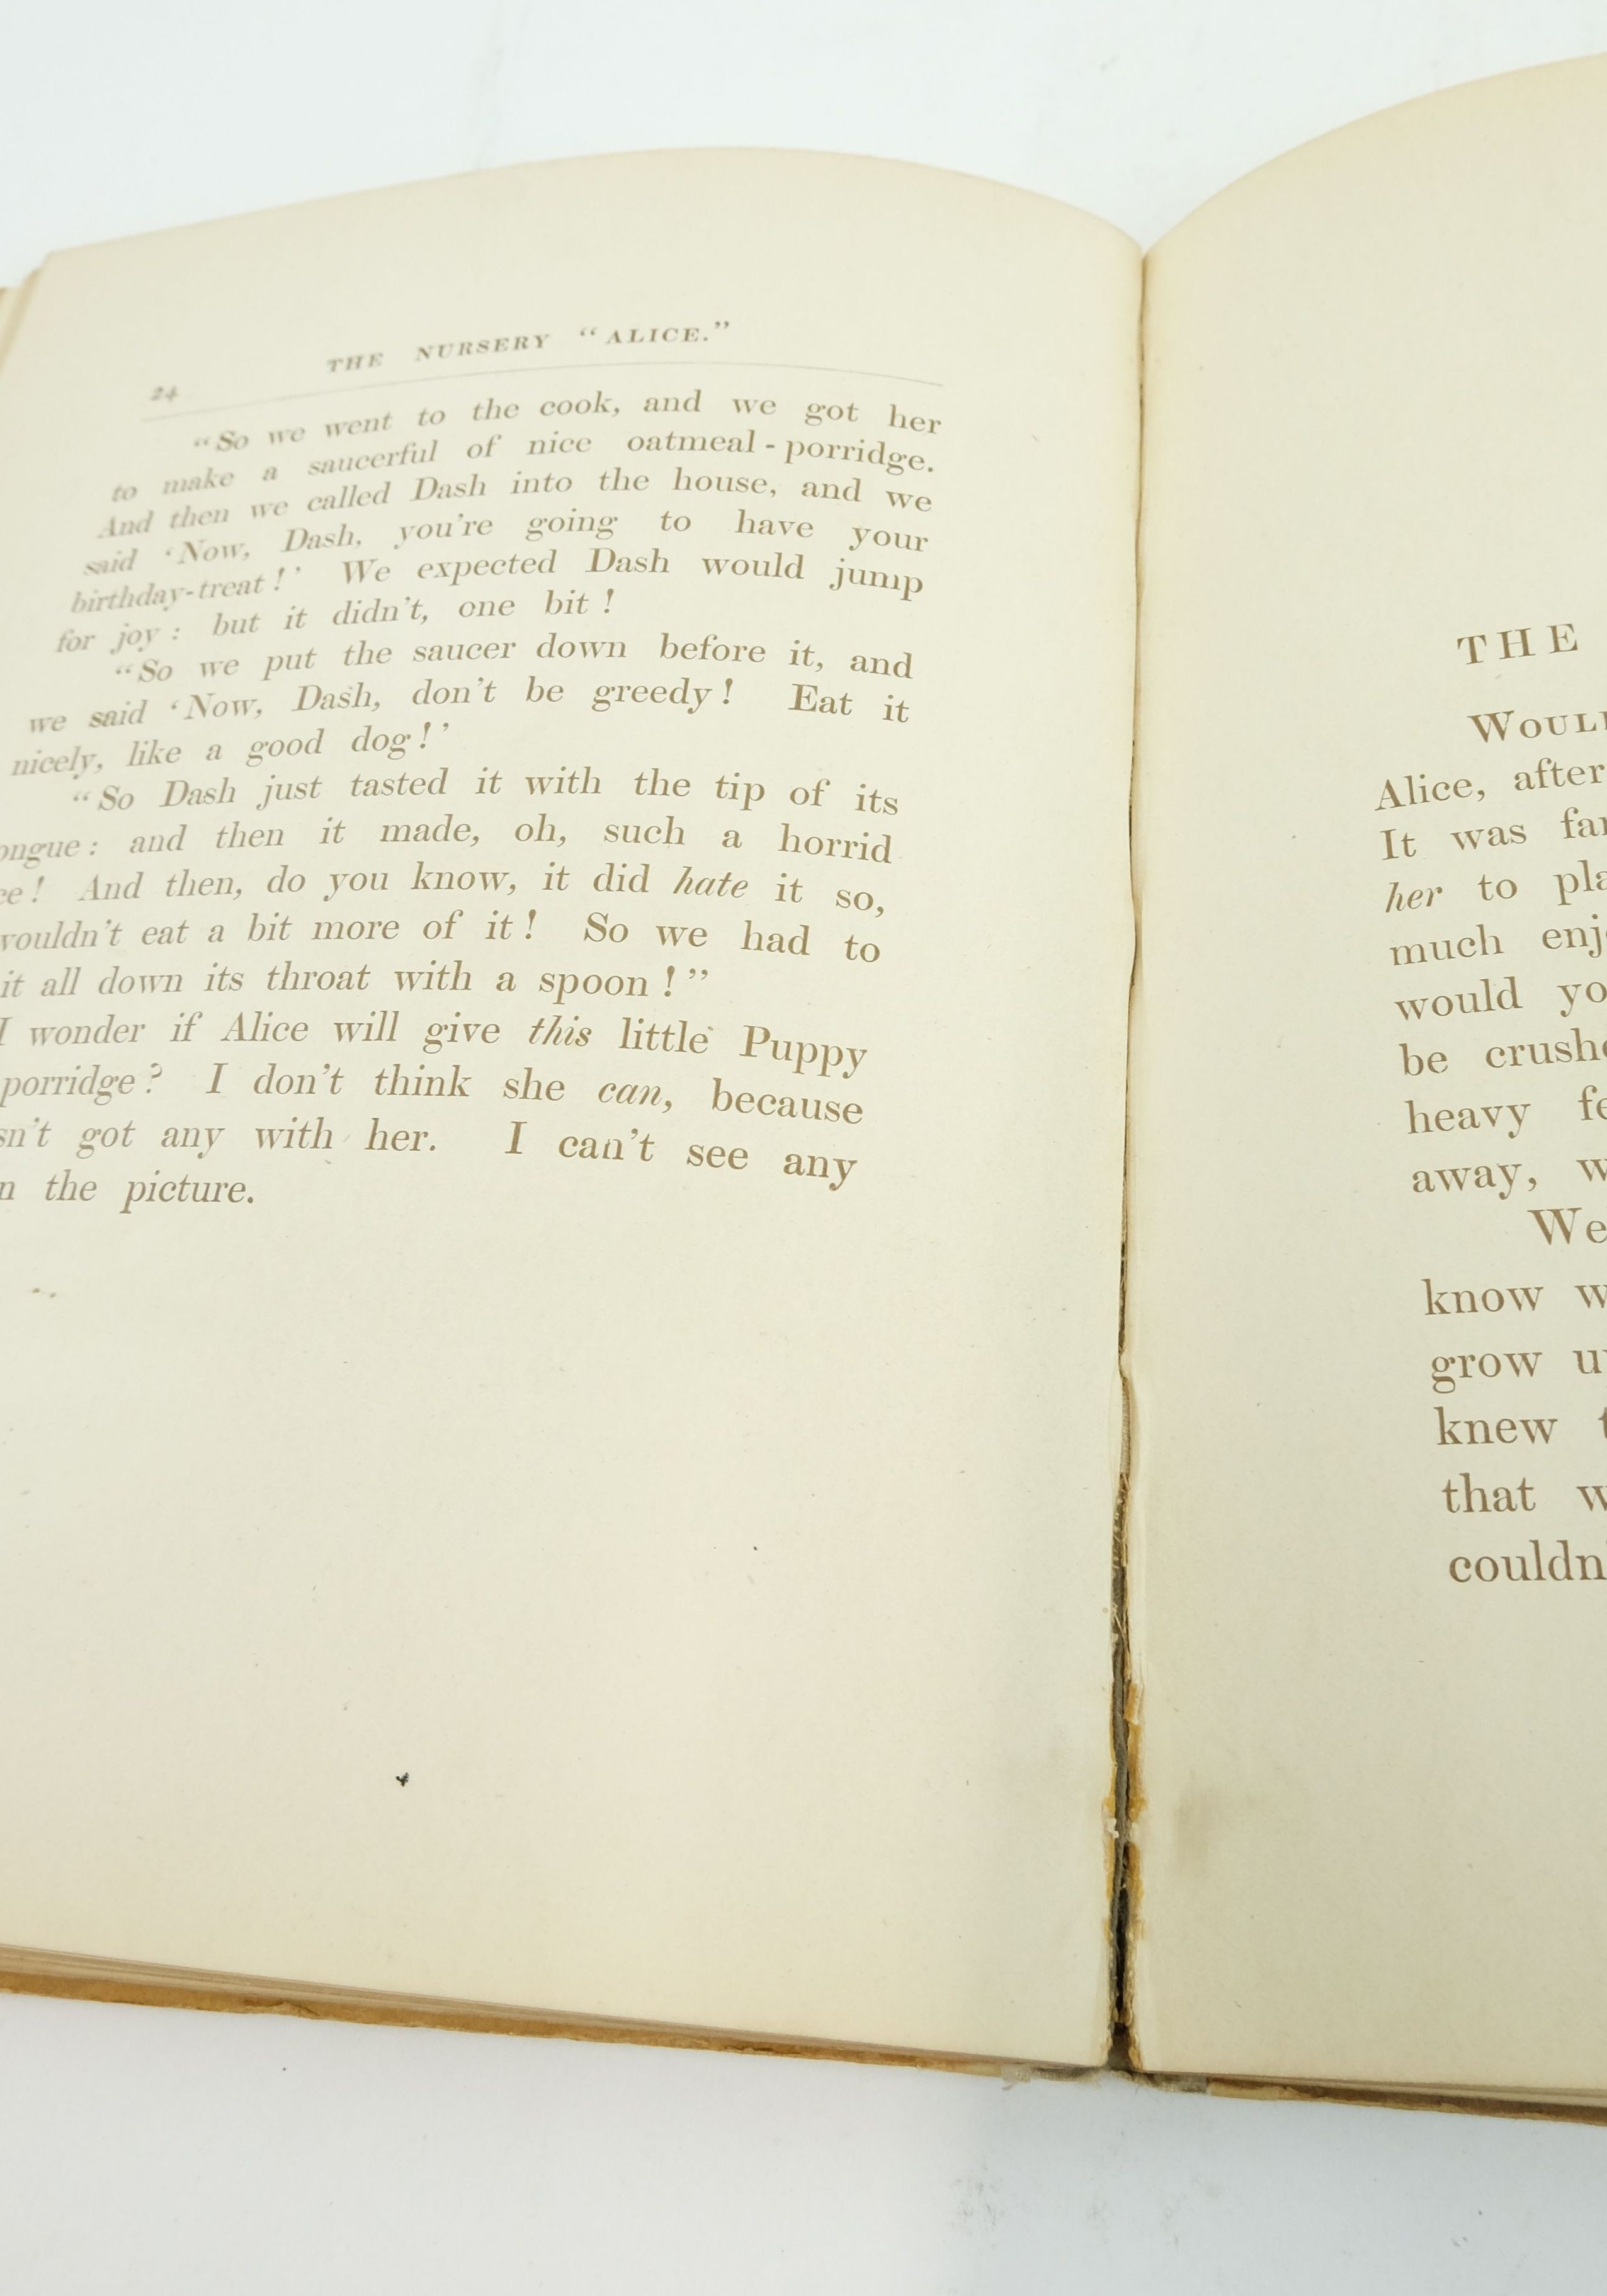 24
THE NURSERY "ALICE."
"So we went to the cook, and we got her
to make a saucerful of nice oatmeal-porridge.
And then we called Dash into the house, and we
said 'Now, Dash, you're going to have your
birthday-treat!' We expected Dash would jump
for joy: but it didn't, one bit!
"So we put the saucer down before it, and
we said 'Now, Dash, don't be greedy! Eat it
nicely, like a good dog!'
"So Dash just tasted it with the tip of its
ongue: and then it made, oh, such a horrid
ce! And then, do you know, it did hate it so,
wouldn't eat a bit more of it! So we had to
it all down its throat with a spoon!"
I wonder if Alice will give this little Puppy
porridge? I don't think she can, because
sn't got any with her. I can't see any
n the picture.
THE
WOUL
Alice, after
It was far
her to pla
much enj
would yo
be crush
heavy fe
away, w
We
know w
grow u
knew t
that w
couldn'